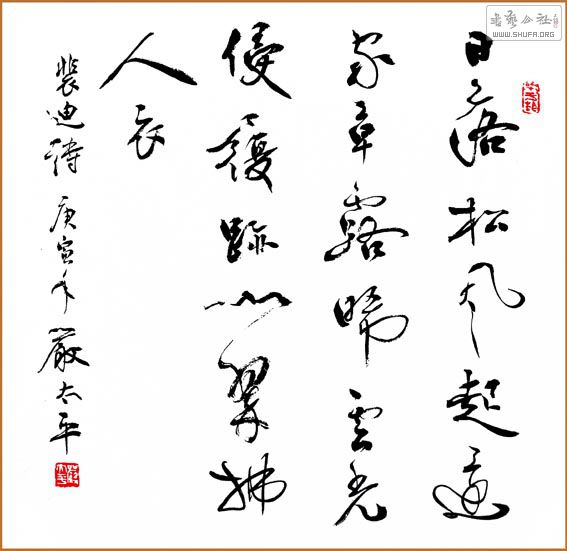 日落松风起還
家草露晞雲光
侵履跡山翠拂
人衣
裴迪詩 庚寅年 嚴太平
WWW.SHUFA.ORG